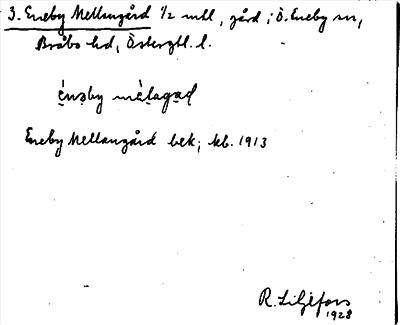 3. Eneby Mellangård 1/2 mtl, gård i Ö. Eneby sn,
Bråbo hd, Östergtl. l.
énəby mèlagaḍ
Eneby Mellangård bek; kb. 1913
R. Liljefors
1928